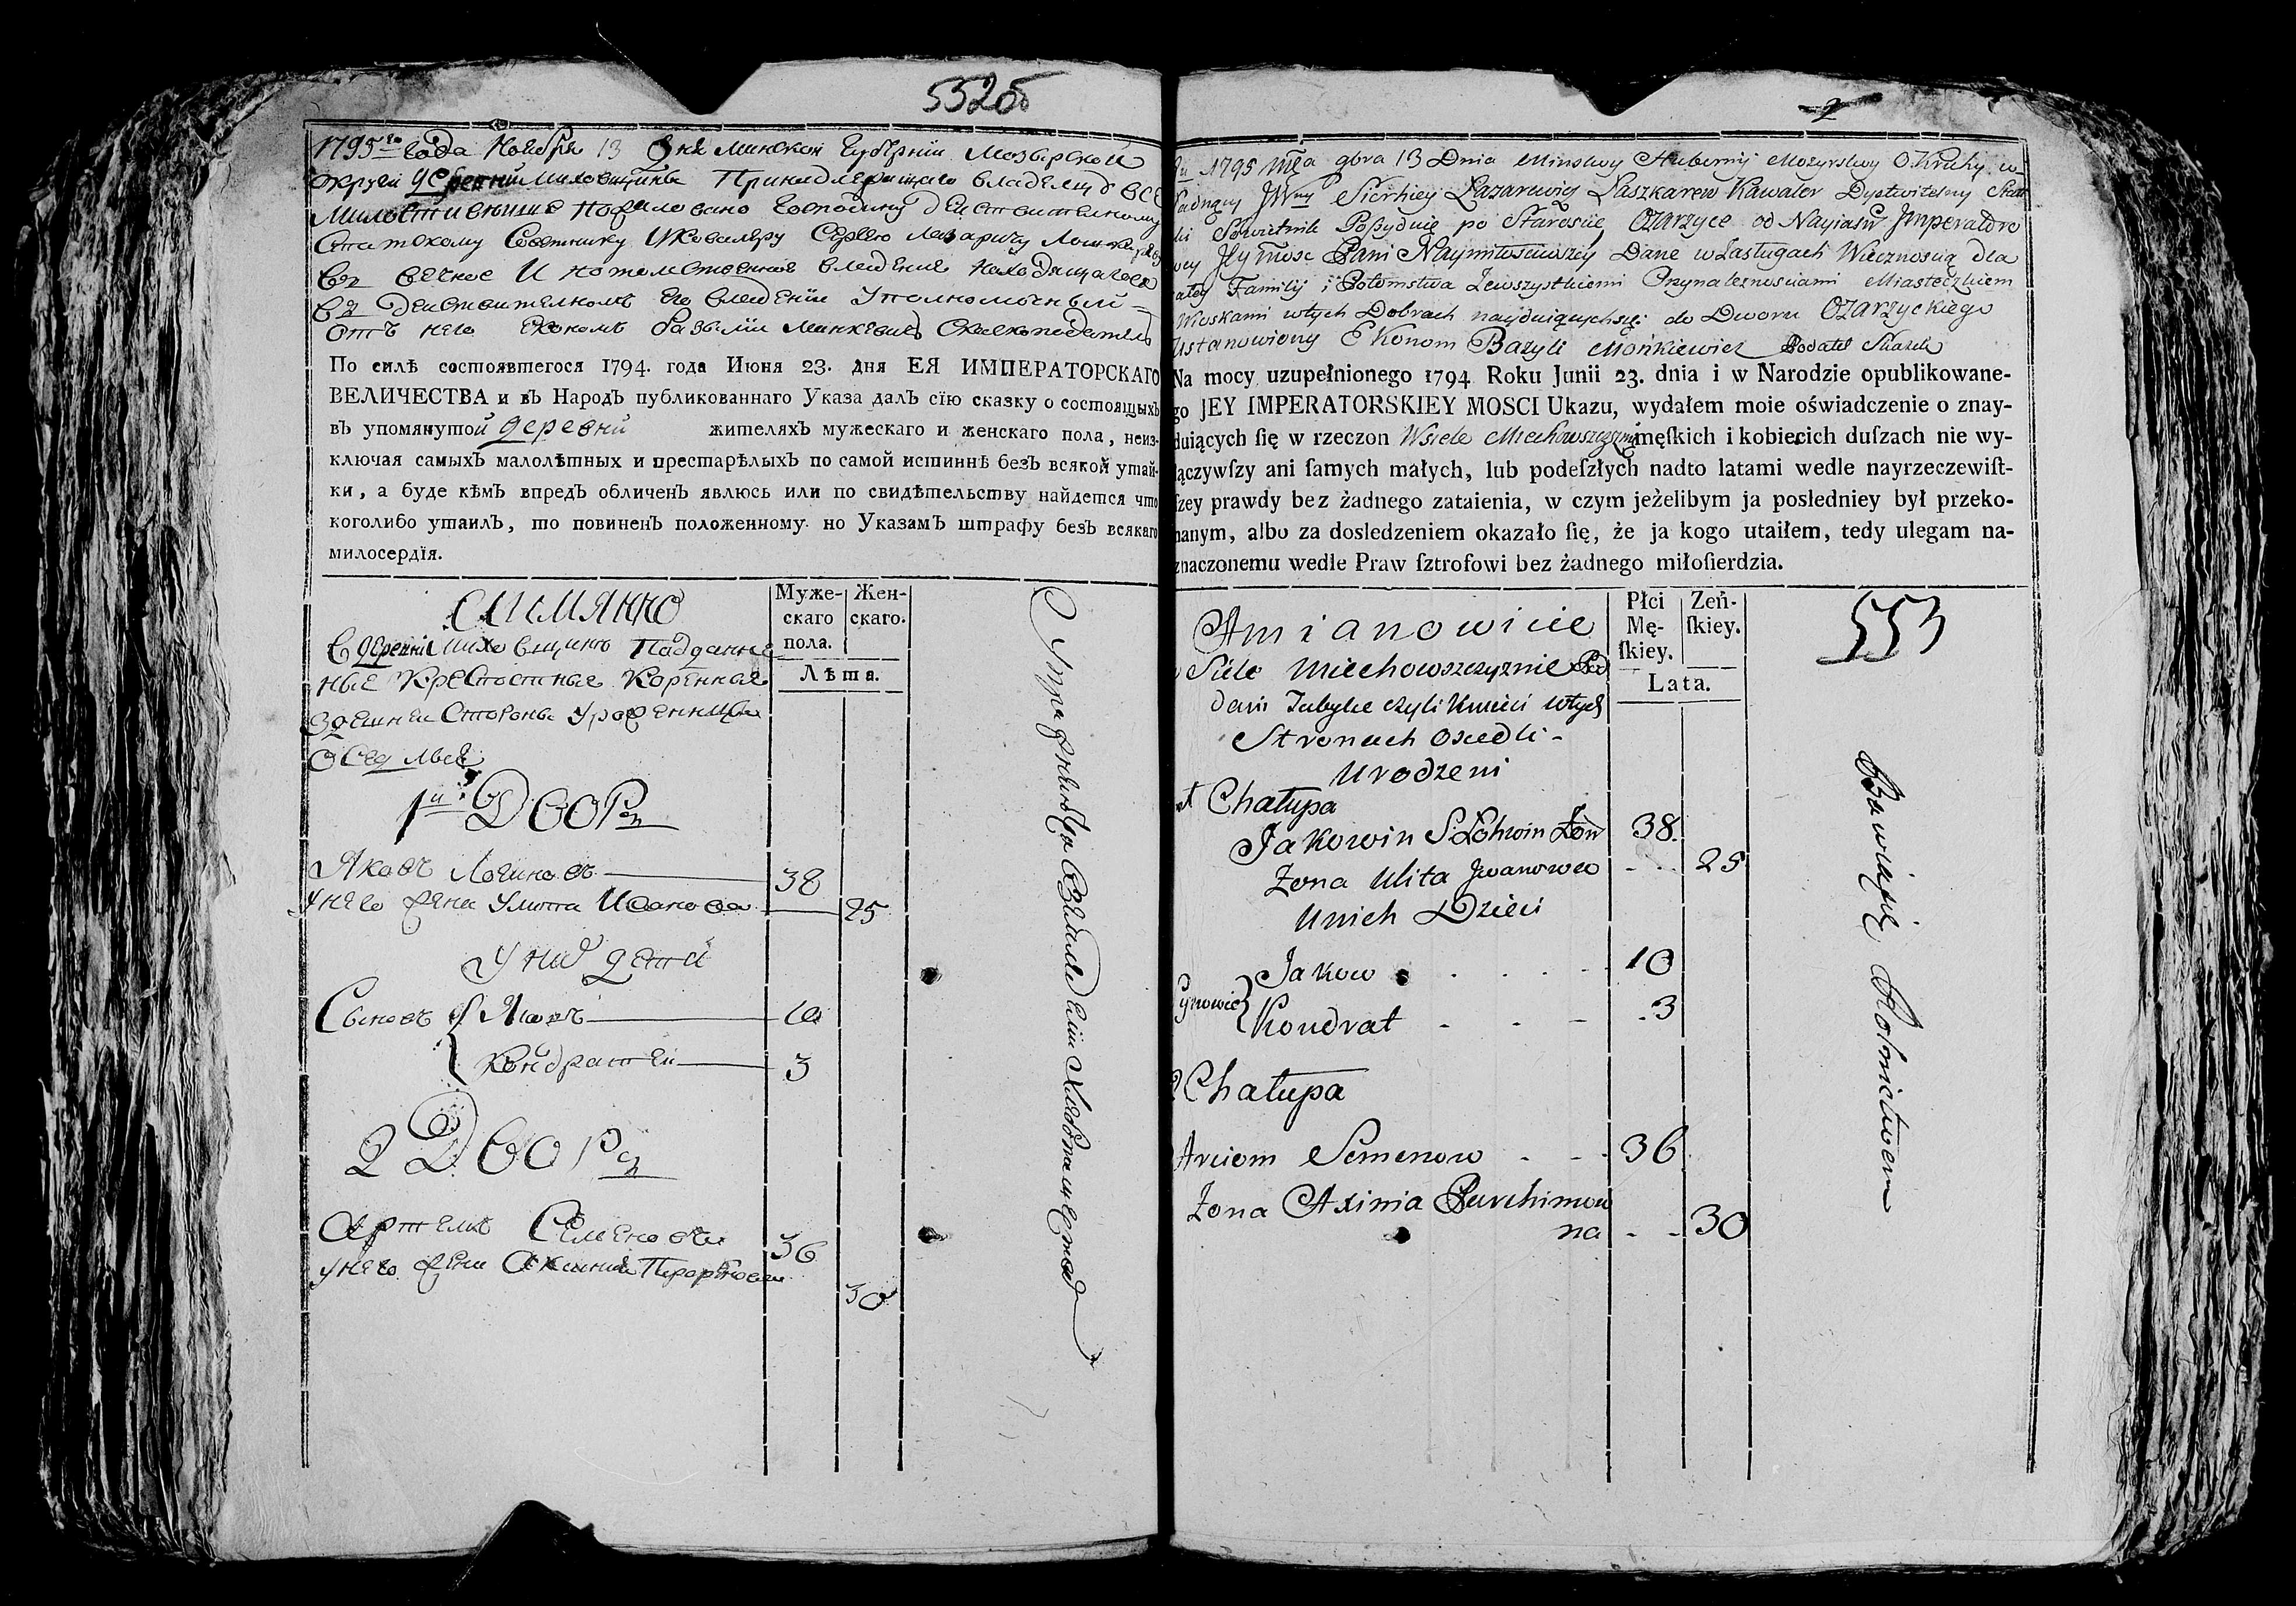 552об
1795го года Ноебря 13 Дня Минской Губернии Мозырской
округи деревни Миховщины Принадлежащаго владельцу все
Милостивейше пожаловано Господину действительному
Статскому Советнику И Кавалеру Сергею Лазаричу Лошкареву
Въ вечное И потомственное владение находящагося
Въ действителномъ его владении Уполномоченный
отъ него Економъ Базылии Минкевичъ Сказкоподатель
По силѣ состоявшегося 1794. года Июня 23. дня ЕЯ ИМПЕРАТОРСКАГО
ВЕЛИЧЕСТВА и въ Народъ публикованнаго Указа далъ сїю сказку о состоящыхъ
въ упомянутой деревни жителяхъ мужескаго и женскаго пола, неиз-
ключая самыхъ малолѣтных и престарѣлыхъ по самой истиннѣ безъ всякой утай-
ки, а буде кѣмъ впредъ обличенъ явлюсь или по свидѣтельству найдется что
коголибо утаилъ, то повиненъ положенному по Указамъ штрафу безъ всякаго
милосердїя.
Муже-
скаго
пола.
Жен-
скаго.
Лѣта.
А имянно
В деревни Миховщине Поддан
ные Крестостные Коренные
Здешней Стороны Уроженицы
Оседлые
1й Дворъ
Яковъ Логиновъ 38
У него жена Улита Иванова 25
У них дети
Сыновъ { Яковъ 10
Кондратей 3
2 Дворъ
Артемъ Семеновъ 36
у него жена Аксиния 30
2
Ru 1795 Mca 9bra 13 Dnia Minskoy Huberny Mozyrskoy Okruhy w
JWny Sierhiey Łazarewicz Łaszkarew Kawaler Dystwitelny Stat
ski Sowietnik Possyduie po Starostie Ozarzyce od Nayiasn Jmperatoro
wey Jeymosc Pani Naymiłosciwszey Dane w Zasługach Wiecznoscią dla
całey Familij i Potomstwa Zewszystkiemi Przynaleznosciami Miasteczkiem
Wioskami w tych Dobrach nayduiąnychsię do Dworu Ozarzyckiego
Ustanowiony Ekonom Bazyli Monkiewicz Podatel Skazki
Na mocy uzupełnionego 1794 Roku Junii 23. dnia i w Narodzie opublikowane-
go JEY IMPERATORSKIEY MOSCI Ukazu, wydałem moie oświadczenie o znay-
duiących ſię w rzeczon Wsiele Miechowszczyznie męſkich i kobiecich duſzach nie wy-
łączywſzy ani ſamych małych, lub podeſzłych nadto latami wedle nayrzeczewiſt-
ſzey prawdy bez żadnego zataienia, w czym jeżelibym ja posledniey był przeko-
nanym, albo za dosledzeniem okazało ſię, że ja kogo utaiłem, tedy ulegam na-
znaczonemu wedle Praw ſztrofowi bez żadnego miłoſierdzia.
Płci
Mę-
ſkiey.
Zeń-
ſkiey.
Lata.
553
Amianowicie
w Siele Miechowszczyznie Pod
dani Tubylce czyli Kmieci w tych
Stronach Osiedli-
Urodzeni
Chałupa
Jakowin S Łohwin 38.
Zona Ulita Jwanowa 25
U nich Dzieci
Synowie { Jakow 10
Kondrat 3
2 Chałupa
Arciom Semenow 36
Zona Axinia Parchimow
na 30
Bawiąsię Rolnictwem